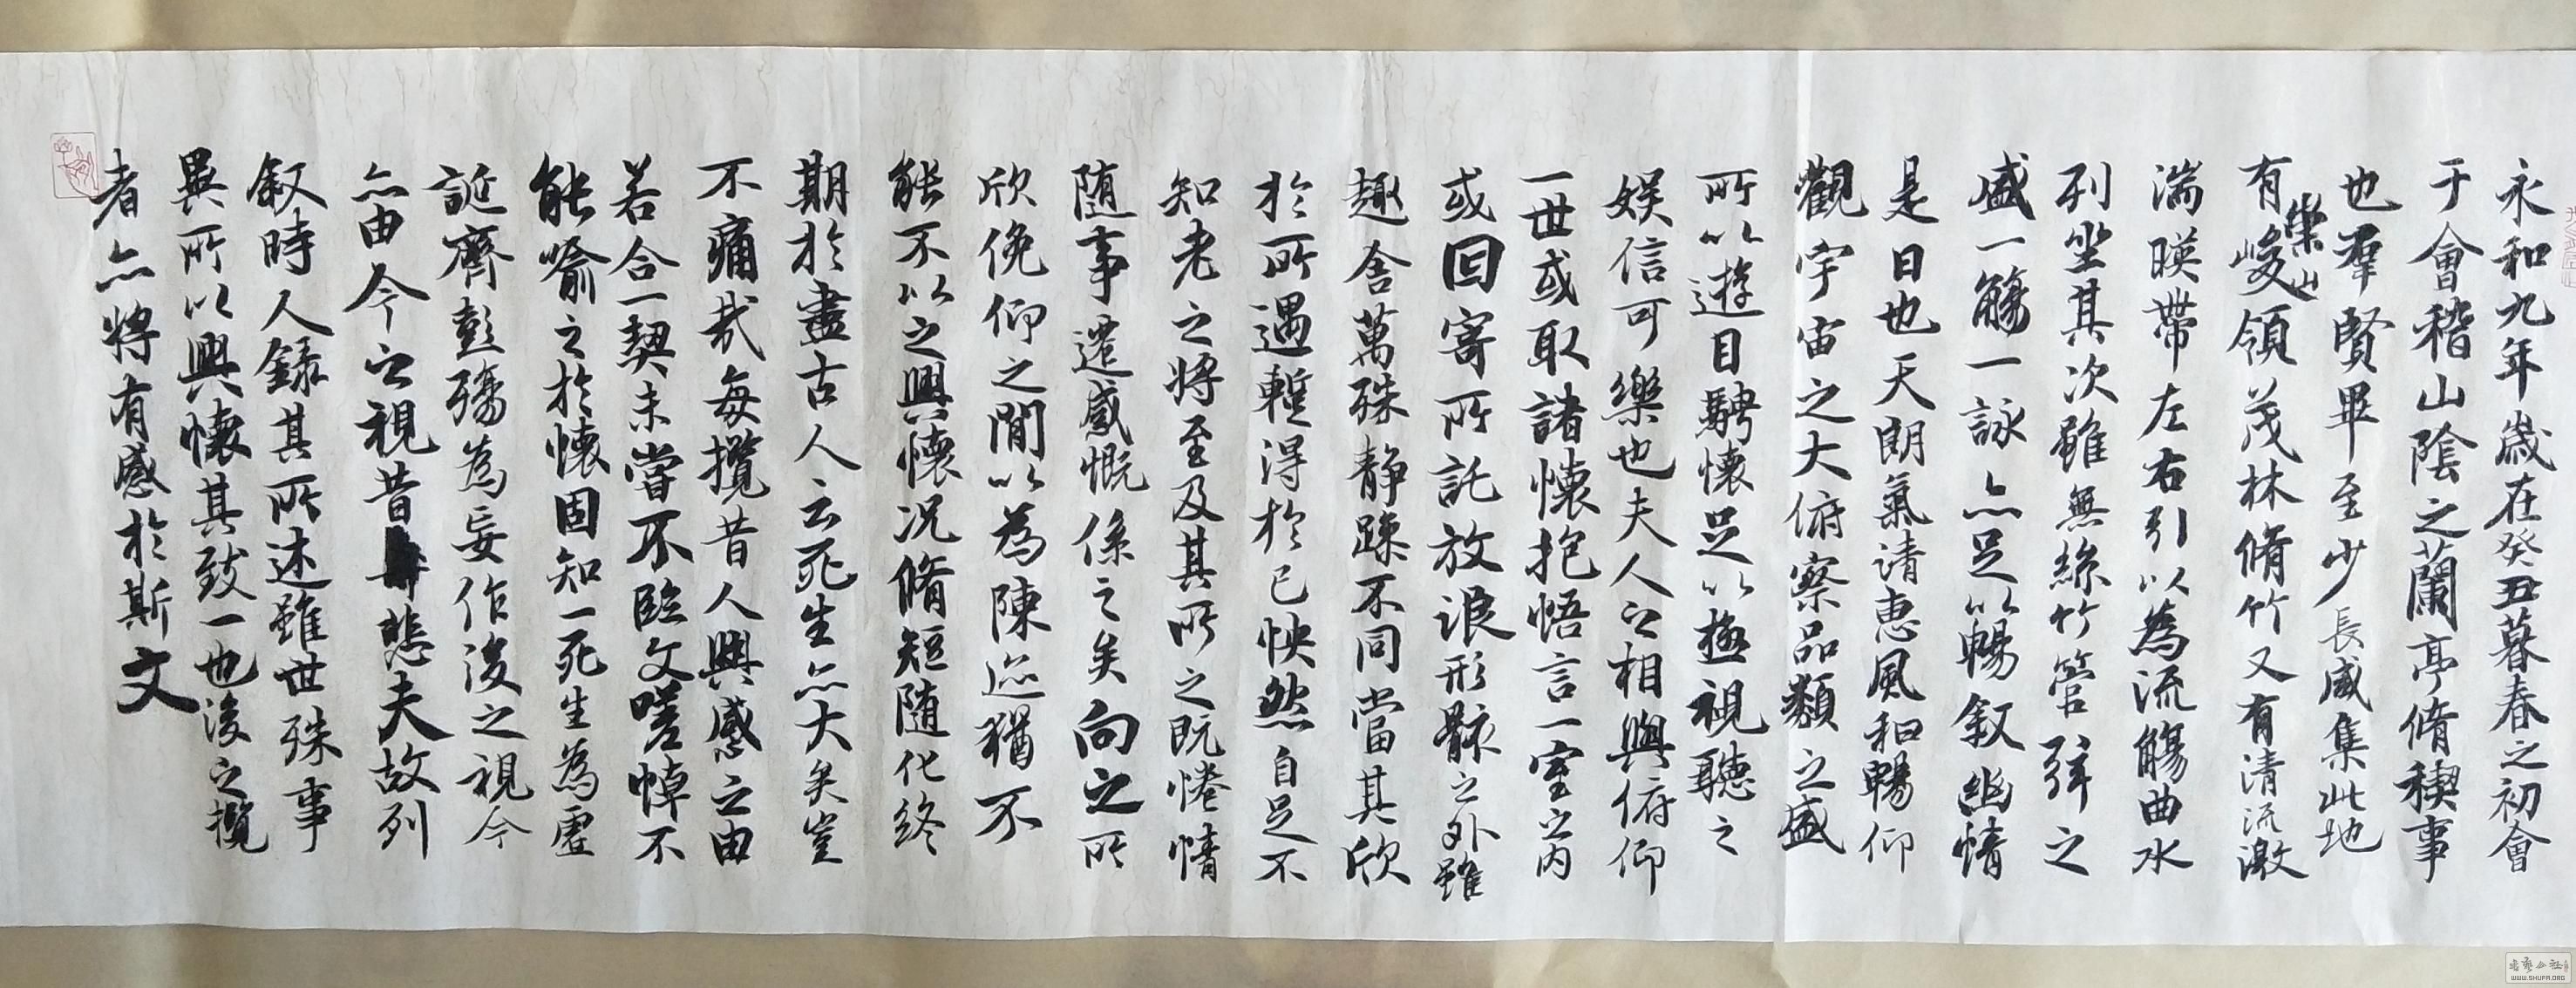 永和九年歲在癸丑暮春之初會
于會稽山陰之蘭亭脩稧事
也羣賢畢至少長咸集此地
有崇山峻領茂林脩竹又有清流激
湍暎帶左右引以為流觴曲水
列坐其次雖無絲竹管弦之
盛一觴一詠亦足以暢叙幽情
是日也天朗氣清惠風和暢仰
觀宇宙之大俯察品類之盛
所以遊目騁懷足以極視聽之
娛信可樂也夫人之相與俯仰
一世或取諸懷抱悟言一室之內
或因寄所託放浪形骸之外雖
趣舍萬殊静躁不同當其欣
於所遇蹔得於己怏然自足不
知老之將至及其所之既惓情
随事遷感慨係之矣向之所
欣俛仰之閒以為陳迹猶不
能不以之興懷況脩短随化終
期於盡古人云死生亦大矣豈
不痛哉每攬昔人興感之由
若合一契未嘗不臨文嗟悼不
能喻之於懷固知一死生為虛
誕齊彭殤為妄作後之視今
亦由今之視昔悲夫故列
叙時人錄其所述雖世殊事
異所以興懷其致一也後之攬
者亦將有感於斯文
WWW.SHUFA.ORG